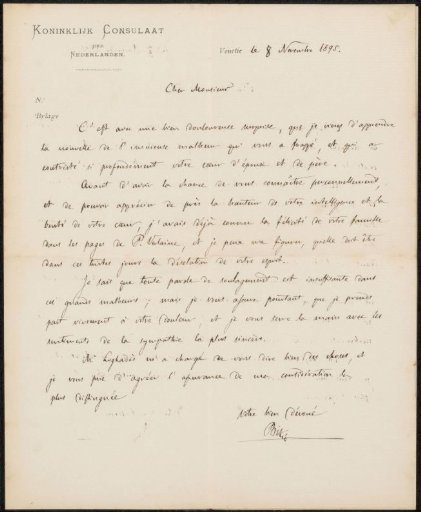 KONINKLIJK CONSULAAT
DER
NEDERLANDEN.
Venetië le 8 Novembre 1895.
Cher Monsieur
No
Bijlage
C'est avec une bien douloureuse surprise, que je viens d'apprendre
la nouvelle de l'insidieux malheur qui vous a frappé, et qui a
si profondément votre cœur d'époux et de père.
Avant d'avoir la chance de vous connaître personnellement,
et de pouvoir apprécier de près la hauteur de votre intelligence et la
bonté de votre cœur, j'avais déjà connu la félicité de votre famille
dans les pages de P. Verlaine, et je peux me figurer, quelle doit être
dans ces tristes jours la désolation de votre esprit.
Je sais que toute parole de soulagement est insuffisante dans
ces grands malheurs; mais je vous assure pourtant, que je prends
part vivement à votre douleur et je vous serre la main avec les
sentiments de la sympathie la plus sincère.
Mr m'a chargé de vous dire bien des choses, et
je vous prie d'agréer l'assurance de ma considération la
plus distinguée
Votre bien dévoué